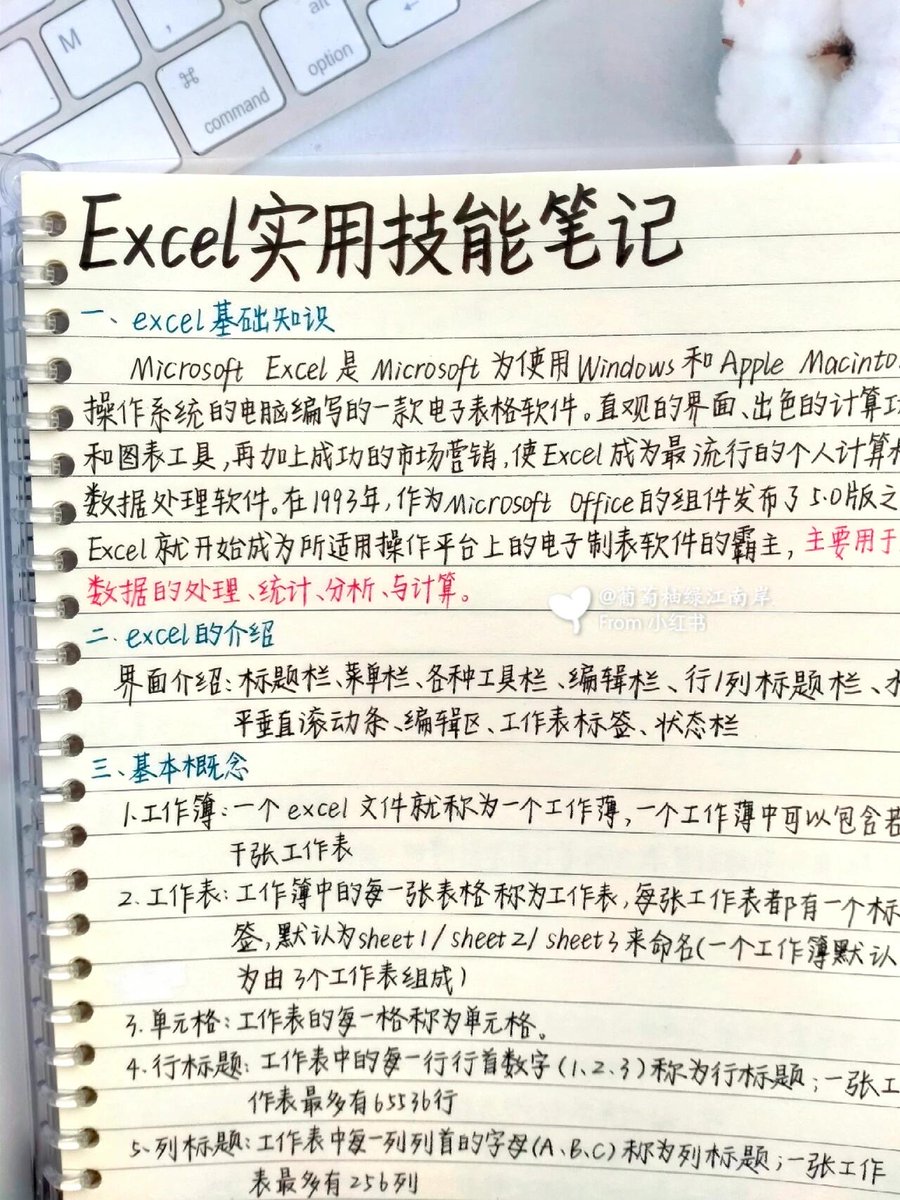 M
,
⌘
command
alt
option
←
Excel实用技能笔记
一、excel基础知识
Microsoft Excel是Microsoft为使用Windows和Apple Macinto
操作系统的电脑编写的一款电子表格软件。直观的界面、出色的计算
和图表工具,再加上成功的市场营销,使Excel成为最流行的个人计算
数据处理软件。在1993年,作为Microsoft Office的组件发布了5.0版之
Excel就开始成为所适用操作平台上的电子制表软件的霸主,主要用于
数据的处理、统计、分析、与计算。
@葡萄柚绿江南岸
From 小红书
二.excel的介绍
界面介绍:标题栏、菜单栏、各种工具栏、编辑栏、行/列标题栏、水
平垂直滚动条、编辑区、工作表标签、状态栏
三、基本概念
1.工作簿:一个excel文件就称为一个工作薄,一个工作薄中可以包含若
干张工作表
2.工作表:工作簿中的每一张表格称为工作表,每张工作表都有一个标
签,默认为sheet1/sheet2/sheet3来命名(一个工作簿默认
为由3个工作表组成)
3.单元格:工作表的每一格称为单元格。
4.行标题:工作表中的每一行行首数字(1、2、3)称为行标题;一张工
作表最多有65536行
5.列标题:工作表中每一列列首的字母(A、B、C)称为列标题;一张工作
表最多有256列